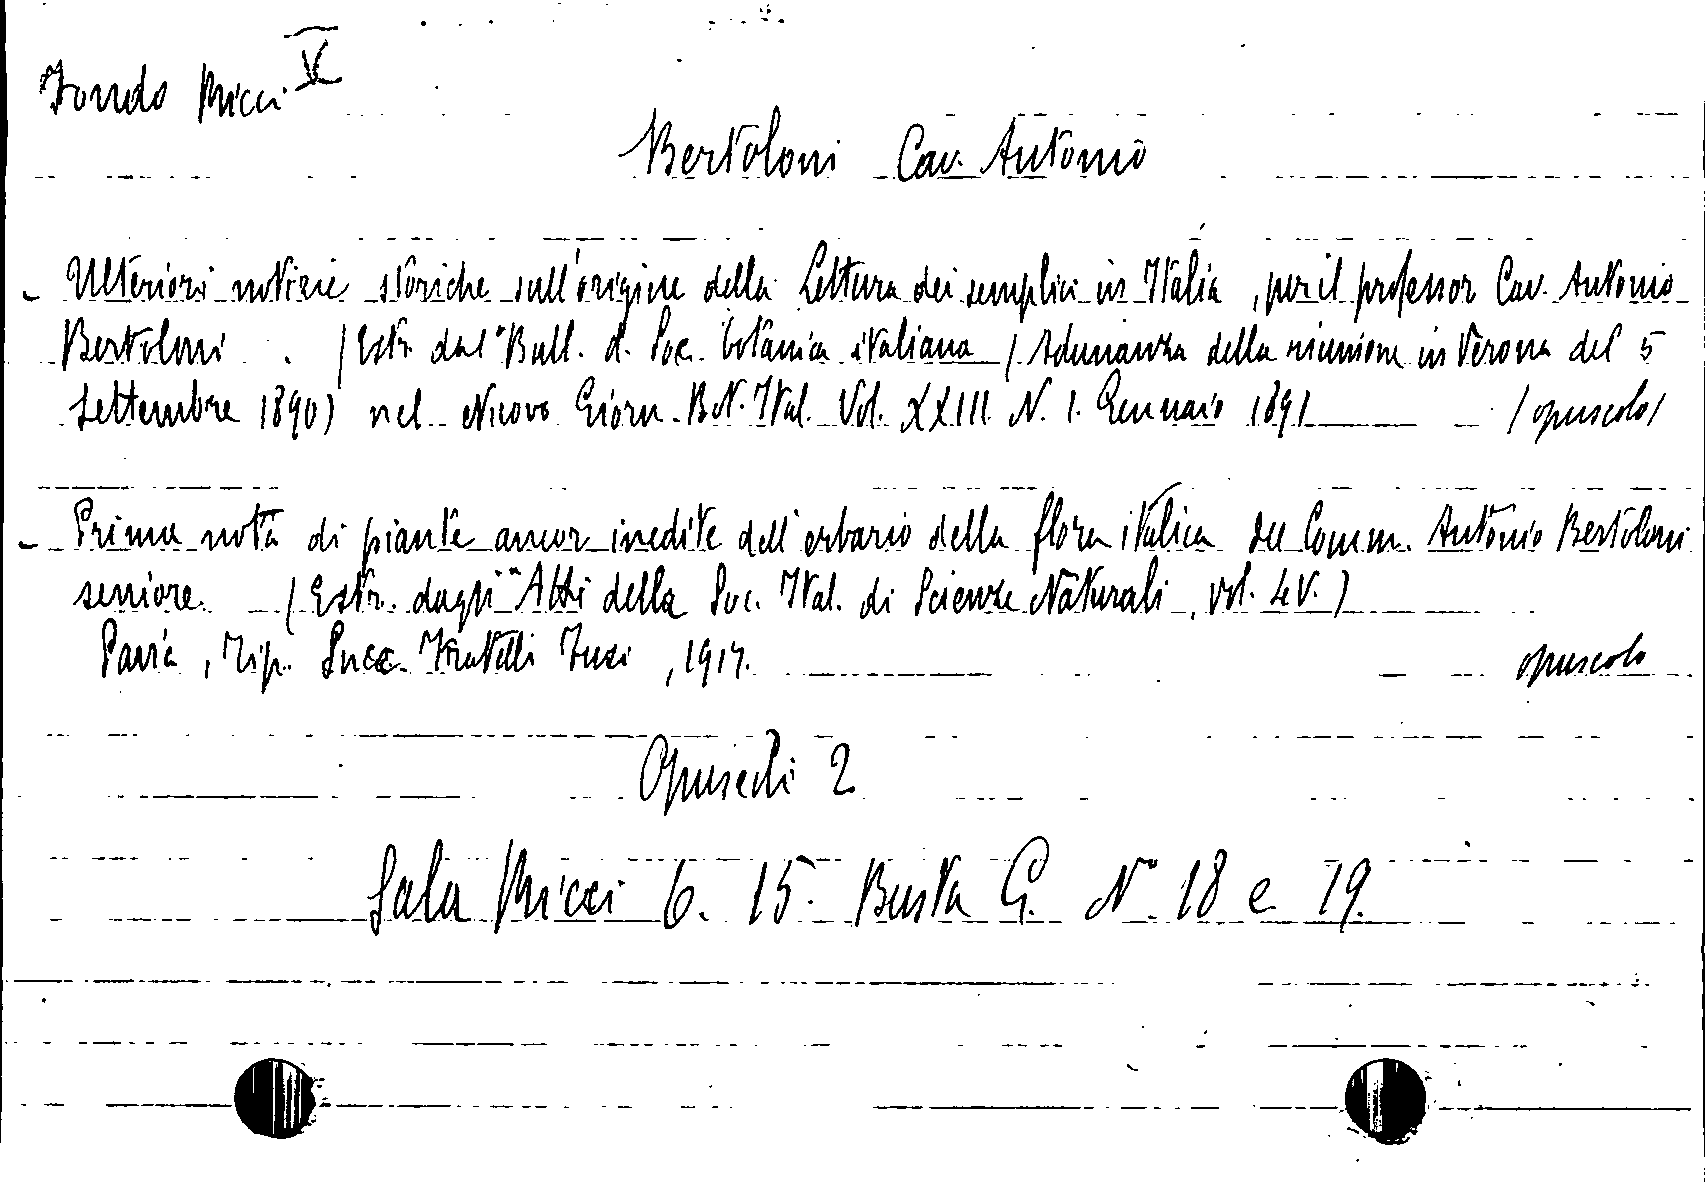 Fondo Ricci V
Bertoloni Cav. Antonio
- Ulteriori notizie storiche sull'origine della Lettura dei semplici in Italia, per il professor Cav. Antonio
Bertoloni. (Estr. dal "Bull. d. Soc. botanica italiana (Adunanza della riunione in Verona del 5
settembre 1890) nel Nuovo Giorn. Bot. Ital. Vol. XXIII N. 1. Gennaio 1891 (opuscolo)
- Prima nota di piante ancor inedite dell'erbario della flora italica del Comm. Antonio Bertoloni
seniore. (Estr. dagli "Atti della Soc. Ital. di Scienze Naturali, vol. LV.)
Pavia, Tip. Succ. Fratelli Fusi, 1917. opuscolo
Opuscoli 2
Sala Ricci 6. 15. Busta G. N. 18 e 19.